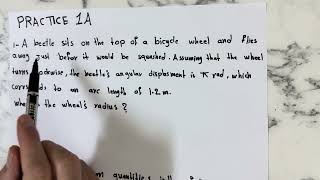 PRACTICE 1A
1- A beetle sits on the top of a bicycle wheel and flies
away just befor it would be squashed. Assuming that the wheel
turns clockwise, the beetle's angular displacment is π rad, which
to an arc length of 1.2 m.
the wheel's radius?
quantities